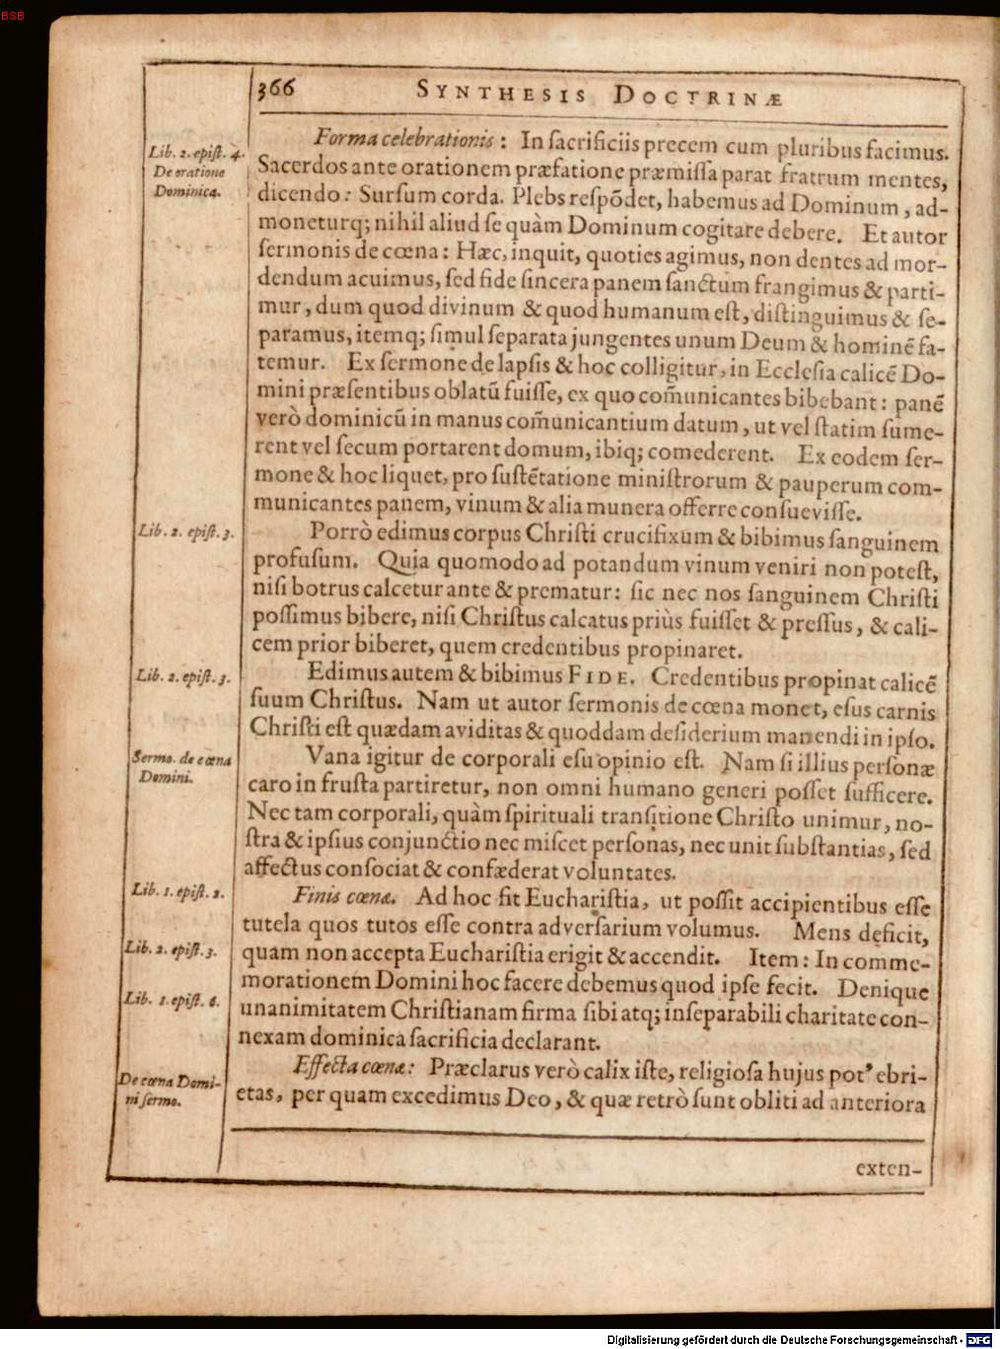 BSB
366 SYNTHESIS DOCTRINÆ
Lib. 2. epiſt. 4.
De oratione
Dominica.
Forma celebrationis: In ſacrificiis precem cum pluribus facimus.
Sacerdos ante orationem præfatione præmiſſa parat fratrum mentes,
dicendo: Surſum corda. Plebs reſpõdet, habemus ad Dominum, ad-
moneturq; nihil aliud ſe quàm Dominum cogitare debere. Et autor
ſermonis de cœna: Hæc, inquit, quoties agimus, non dentes ad mor-
dendum acuimus, ſed fide ſincera panem ſanctum frangimus & parti-
mur, dum quod divinum & quod humanum eſt, diſtinguimus & ſe-
paramus, itemq; ſimul ſeparata jungentes unum Deum & hominẽ fa-
temur. Ex ſermone de lapſis & hoc colligitur, in Eccleſia calicẽ Do-
mini præſentibus oblatũ fuiſſe, ex quo com̃unicantes bibebant: panẽ
verò dominicũ in manus com̃unicantium datum, ut vel ſtatim ſume-
rent vel ſecum portarent domum, ibiq; comederent. Ex eodem ſer-
mone & hoc liquet, pro ſuſtẽtatione miniſtrorum & pauperum com-
municantes panem, vinum & alia munera offerre conſueviſſe.
Lib. 2. epiſt. 3.
Porrò edimus corpus Chriſti crucifixum & bibimus ſanguinem
profuſum. Quia quomodo ad potandum vinum veniri non poteſt,
niſi botrus calcetur ante & prematur: ſic nec nos ſanguinem Chriſti
poſſimus bibere, niſi Chriſtus calcatus priùs fuiſſet & preſſus, & cali-
cem prior biberet, quem credentibus propinaret.
Lib. 2. epiſt. 3.
Edimus autem & bibimus FIDE. Credentibus propinat calicẽ
ſuum Chriſtus. Nam ut autor ſermonis de cœna monet, eſus carnis
Chriſti eſt quædam aviditas & quoddam deſiderium manendi in ipſo.
Sermo. de cœna
Domini.
Vana igitur de corporali eſu opinio eſt. Nam ſi illius perſonæ
caro in fruſta partiretur, non omni humano generi poſſet ſufficere.
Nec tam corporali, quàm ſpirituali tranſitione Chriſto unimur, no-
ſtra & ipſius conjunctio nec miſcet perſonas, nec unit ſubſtantias, ſed
affectus conſociat & confæderat voluntates.
Lib. 1. epiſt. 2.
Finis cœnæ. Ad hoc fit Euchariſtia, ut poſſit accipientibus eſſe
tutela quos tutos eſſe contra adverſarium volumus. Mens deficit,
Lib. 2. epiſt. 3.
quam non accepta Euchariſtia erigit & accendit. Item: In comme-
morationem Domini hoc facere debemus quod ipſe fecit. Denique
Lib. 1. epiſt. 6.
unanimitatem Chriſtianam firma ſibi atq; inſeparabili charitate con-
nexam dominica ſacrificia declarant.
De cœna Domi-
ni ſermo.
Effecta cœnæ: Præclarus verò calix iſte, religioſa hujus pot' ebri-
etas, per quam excedimus Deo, & quæ retrò ſunt obliti ad anteriora
exten-
Digitalisierung gefördert durch die Deutsche Forschungsgemeinschaft - DFG